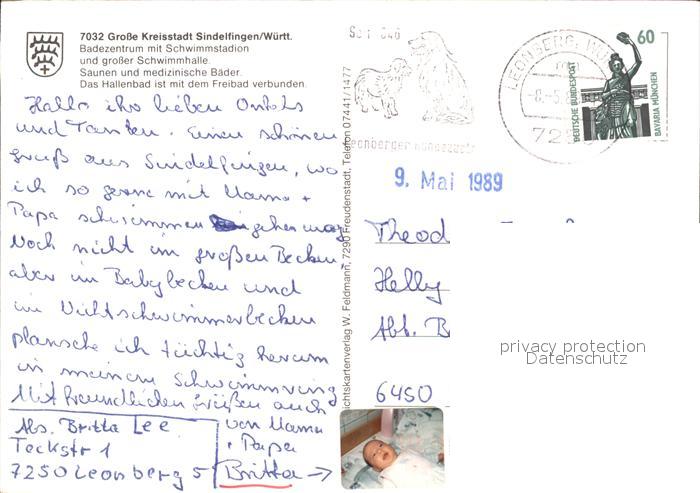 7032 Große Kreisstadt Sindelfingen/Württ.
Badezentrum mit Schwimmstadion
und großer Schwimmhalle.
Saunen und medizinische Bäder.
Das Hallenbad ist mit dem Freibad verbunden.
Hallo ihr lieben Onkels
und Tanten. Einen schönen
Gruß aus Sindelfingen, wo
ich so gerne mit Mama +
Papa schwimmen gehen mag
Noch nicht im großen Becken,
aber im Babybecken und
im Nichtschwimmerbecken
plansche ich tüchtig herum
in meinem Schwimmring
Mit freundlichen Grüßen auch
von Mama
+ Papa
Britta →
Abs. Britta Lee
Teckstr 1
7250 Leonberg 5
ichtskartenverlag W. Feldmann, 7290 Freudenstadt, Telefon 07441/1477
LEONBERG, WÜ
-8.-5.
72
60
DEUTSCHE BUNDESPOST
BAVARIA MÜNCHEN
9. Mai 1989
Theod
Helly
Abt. B
6450
privacy protection
Datenschutz